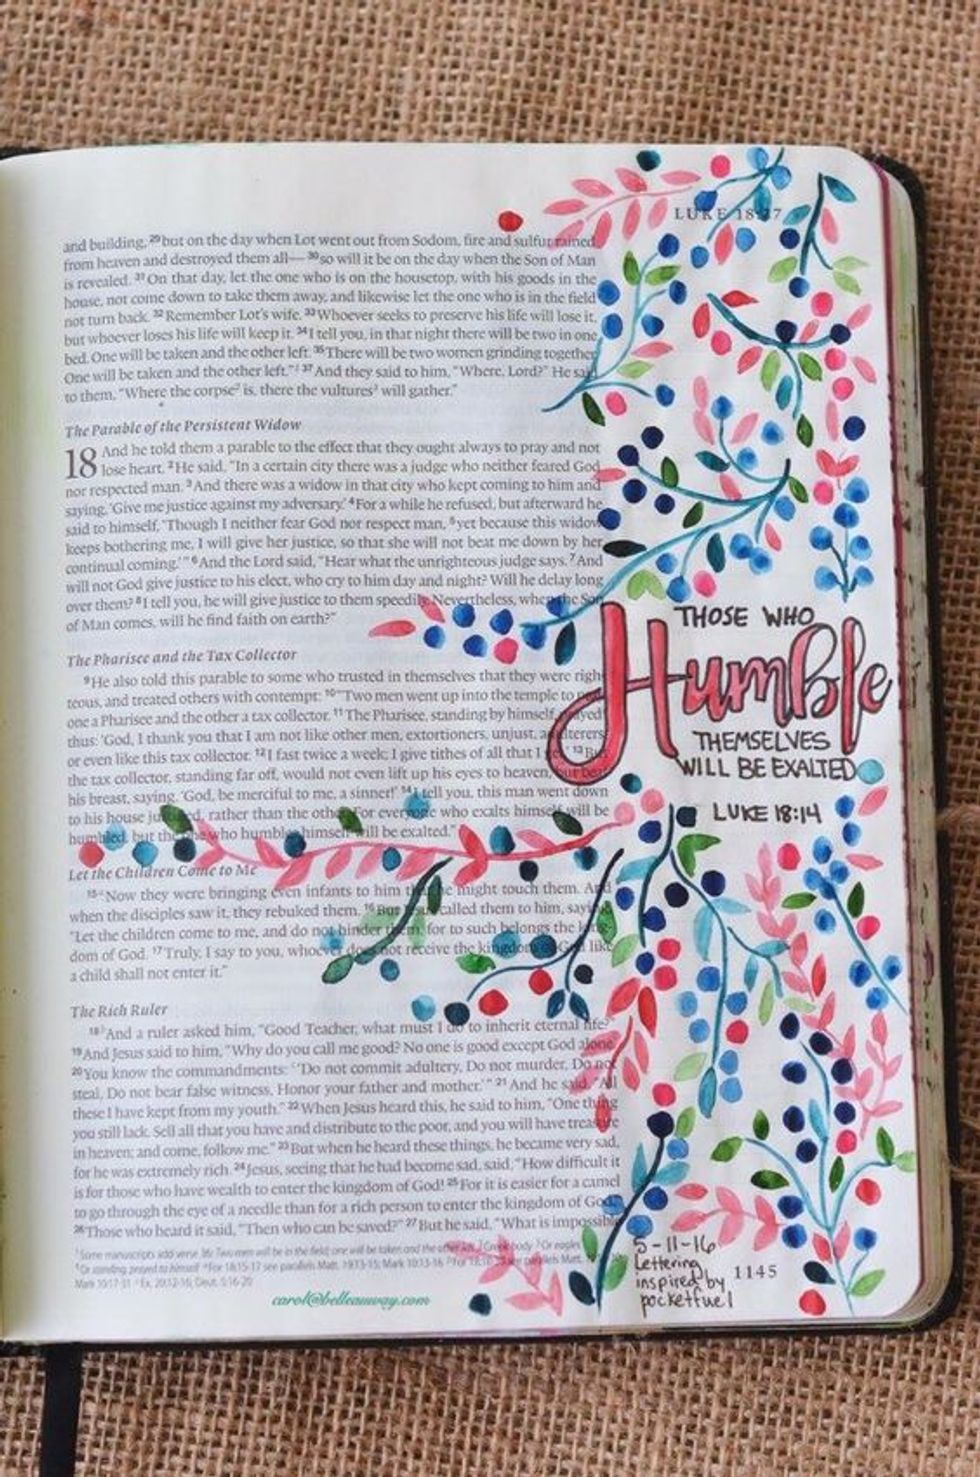 LUKE 18:27
and building, 29but on the day when Lot went out from Sodom, fire and sulfur rained
from heaven and destroyed them all— 30so will it be on the day when the Son of Man
is revealed. 31On that day, let the one who is on the housetop, with his goods in the
house, not come down to take them away, and likewise let the one who is in the field
not turn back. 32Remember Lot's wife. 33Whoever seeks to preserve his life will lose it,
but whoever loses his life will keep it. 34I tell you, in that night there will be two in one
bed. One will be taken and the other left. 35There will be two women grinding together.
One will be taken and the other left." 37And they said to him, "Where, Lord?" He said
to them, "Where the corpse2 is, there the vultures3 will gather."
The Parable of the Persistent Widow
18 And he told them a parable to the effect that they ought always to pray and not
lose heart. 2He said, "In a certain city there was a judge who neither feared God
nor respected man. 3And there was a widow in that city who kept coming to him and
saying, 'Give me justice against my adversary.' 4For a while he refused, but afterward he
said to himself, 'Though I neither fear God nor respect man, 5yet because this widow
keeps bothering me, I will give her justice, so that she will not beat me down by her
continual coming.'" 6And the Lord said, "Hear what the unrighteous judge says. 7And
will not God give justice to his elect, who cry to him day and night? Will he delay long
over them? 8I tell you, he will give justice to them speedily. Nevertheless, when the Son
of Man comes, will he find faith on earth?"
The Pharisee and the Tax Collector
9He also told this parable to some who trusted in themselves that they were righ-
teous, and treated others with contempt: 10"Two men went up into the temple to
one a Pharisee and the other a tax collector. 11The Pharisee, standing by himself, prayed
thus: 'God, I thank you that I am not like other men, extortioners, unjust, adulterers,
or even like this tax collector. 12I fast twice a week; I give tithes of all that I get.' 13But
the tax collector, standing far off, would not even lift up his eyes to heaven, but beat
his breast, saying, 'God, be merciful to me, a sinner!' 14I tell you, this man went down
to his house justified, rather than the other. For everyone who exalts himself will be
humbled, but the one who humbles himself will be exalted."
Let the Children Come to Me
15Now they were bringing even infants to him that he might touch them. And
when the disciples saw it, they rebuked them. 16But Jesus called them to him, saying,
"Let the children come to me, and do not hinder them, for to such belongs the king-
dom of God. 17Truly, I say to you, whoever does not receive the kingdom of God like
a child shall not enter it."
The Rich Ruler
18And a ruler asked him, "Good Teacher, what must I do to inherit eternal life?"
19And Jesus said to him, "Why do you call me good? No one is good except God alone.
20You know the commandments: 'Do not commit adultery, Do not murder, Do not
steal, Do not bear false witness, Honor your father and mother.'" 21And he said, "All
these I have kept from my youth." 22When Jesus heard this, he said to him, "One thing
you still lack. Sell all that you have and distribute to the poor, and you will have treasure
in heaven; and come, follow me." 23But when he heard these things, he became very sad,
for he was extremely rich. 24Jesus, seeing that he had become sad, said, "How difficult it
is for those who have wealth to enter the kingdom of God! 25For it is easier for a camel
to go through the eye of a needle than for a rich person to enter the kingdom of God."
26Those who heard it said, "Then who can be saved?" 27But he said, "What is impossible
1Some manuscripts add verse 36: Two men will be in the field; one will be taken and the other left 2Greek body 3Or eagles
Mark 10:17-31
carol@belleauway.com
1145
THOSE WHO
Humble
THEMSELVES
WILL BE EXALTED
LUKE 18:14
5-11-16
Lettering
inspired by
pocketfuel